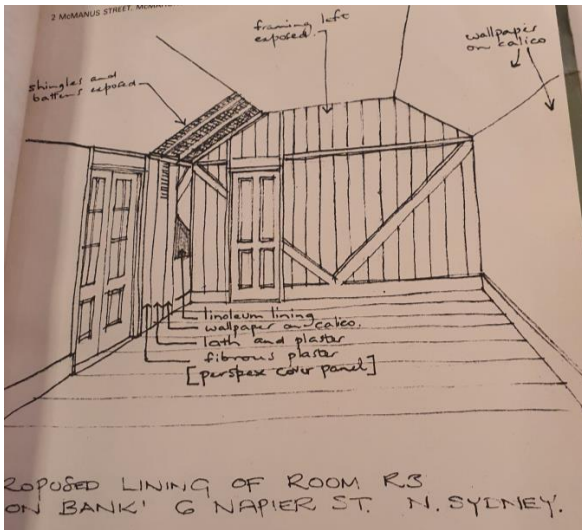 2 McMANUS STREET, McMAHO
framing left
exposed.
wallpaper
on calico
shingles and
battens exposed
linoleum lining
wallpaper on calico.
lath and plaster
fibrous plaster
[perspex cover panel]
ROPOSED LINING OF ROOM R3
ON BANK' 6 NAPIER ST. N. SYDNEY.